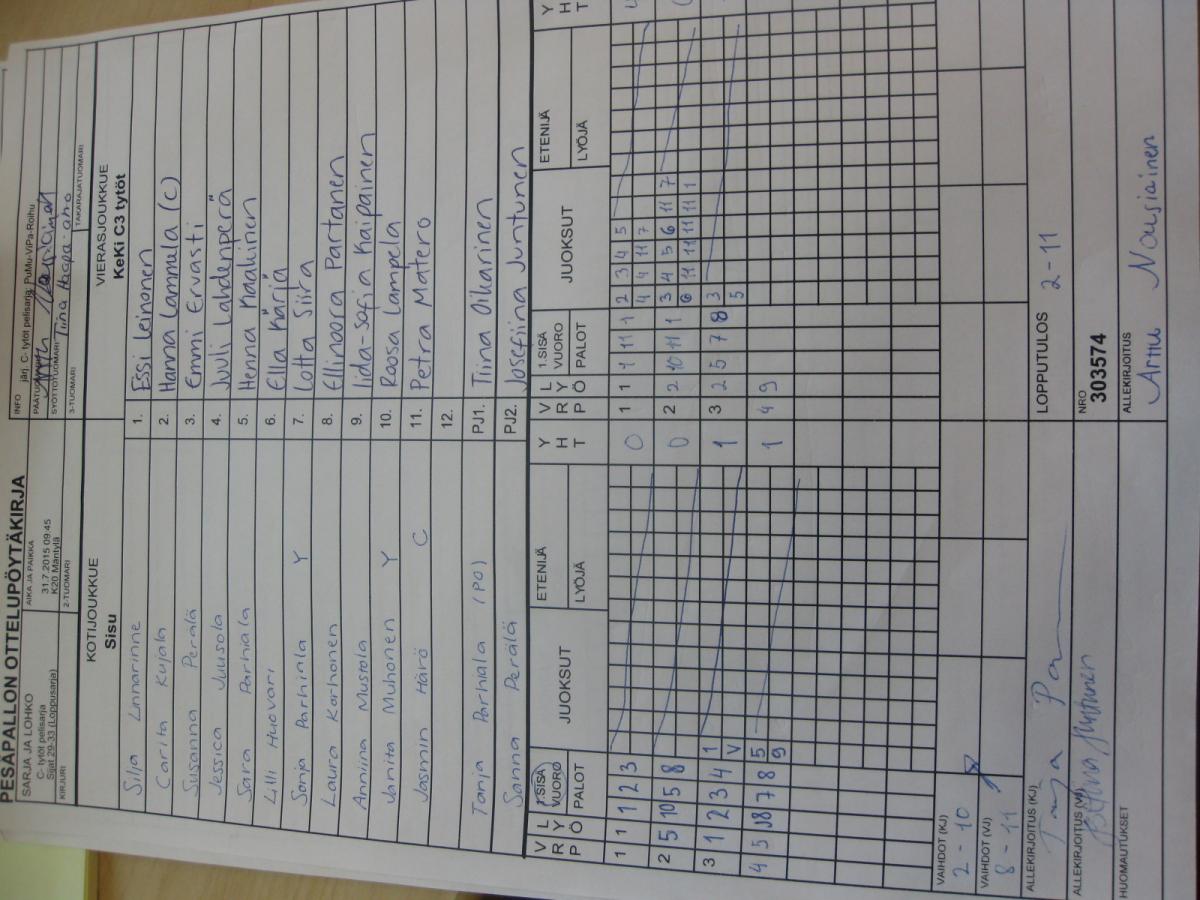 PESÄPALLON OTTELUPÖYTÄKIRJA
SARJA JA LOHKO
C- tytöt pelisarja
Sijat 29-33 (Loppusarja)
AIKA JA PAIKKA
31.7.2015 09:45
K20 Mäntylä
INFO järj. C- tytöt pelisarja, PuMu-ViPa-Roihu
KIRJURI
2-TUOMARI
SYÖTTÖTUOMARI Tiina Haapa-aho
3-TUOMARI
TAKARAJATUOMARI
KOTIJOUKKUE
Sisu
VIERASJOUKKUE
KeKi C3 tytöt
Silja Linnarinne 1. Essi Leinonen
Carita Kujala 2. Hanna Lammula (C)
Susanna Perälä 3. Emmi Ervasti
Jessica Juusola 4. Juuli Lahdenperä
Sara Parhiala 5. Henna Kaalinen
Lilli Huovari 6. Ella Kärjä
Sonja Parhiala Y 7. Lotta Siira
Laura Korhonen 8. Ellinoora Partanen
Anniina Mustola 9. Iida-Sofia Kaipainen
Janita Muhonen Y 10. Roosa Lampela
Jasmin Härö C 11. Petra Matero
12.
Tanja Parhiala (PO) PJ1. Tiina Oikarinen
Sanna Perälä PJ2. Josefiina Juntunen
V R P L Y Ö 1.SISÄ VUORO PALOT JUOKSUT ETENIJÄ LYÖJÄ Y H T V R P L Y Ö 1.SISÄ VUORO PALOT JUOKSUT ETENIJÄ LYÖJÄ Y H T
1 1 1 2 3 0 1 1 1 11 1 2 3 4 5
4 4 11 7
2 5 10 5 8 0 2 2 10 11 1 3 4 5 6 11 7
6 11 11 11 11 1
3 1 2 3 4 1 1 3 2 5 7 8 3
V 5
4 5 8 7 8 5 1 4 9
9
VAIHDOT (KJ)
2-10
VAIHDOT (VJ)
8-11
LOPPUTULOS 2-11
ALLEKIRJOITUS (KJ)
NRO
303574
ALLEKIRJOITUS (VJ)
HUOMAUTUKSET
ALLEKIRJOITUS
Arttu Nousiainen